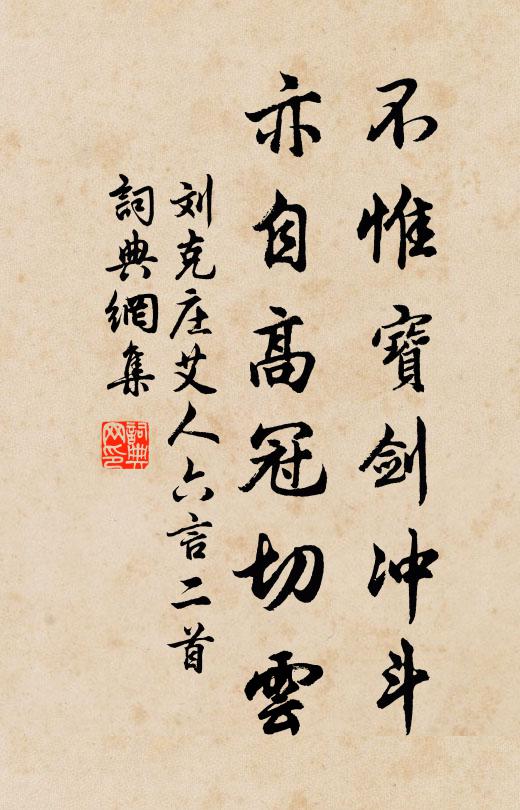 不惟寶劍冲斗
亦自高冠切雲
刘克庄艾人六言二首
詞典網集
詞典
网印